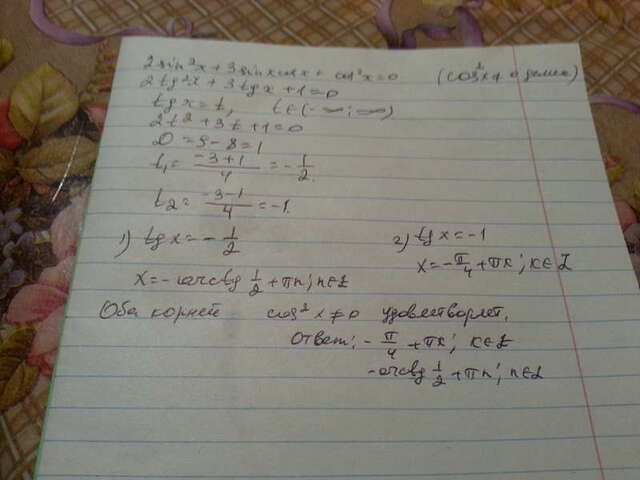 2sin²x + 3sinxcosx + cos²x = 0 (cos²x ≠ 0 делим)
2tg²x + 3tgx + 1 = 0
tgx = t, t ∈ (-∞; ∞)
2t² + 3t + 1 = 0
D = 9 - 8 = 1
t₁ = (-3+1)/4 = -1/2.
t₂ = (-3-1)/4 = -1.
1) tgx = -1/2
x = -arctg 1/2 + πn; n∈Z
2) tg x = -1
x = -π/4 + πk; k∈Z
Оба корней cos²x ≠ 0 удовлетворяет.
Ответ: -π/4 + πk; k∈Z
-arctg 1/2 + πn; n∈Z